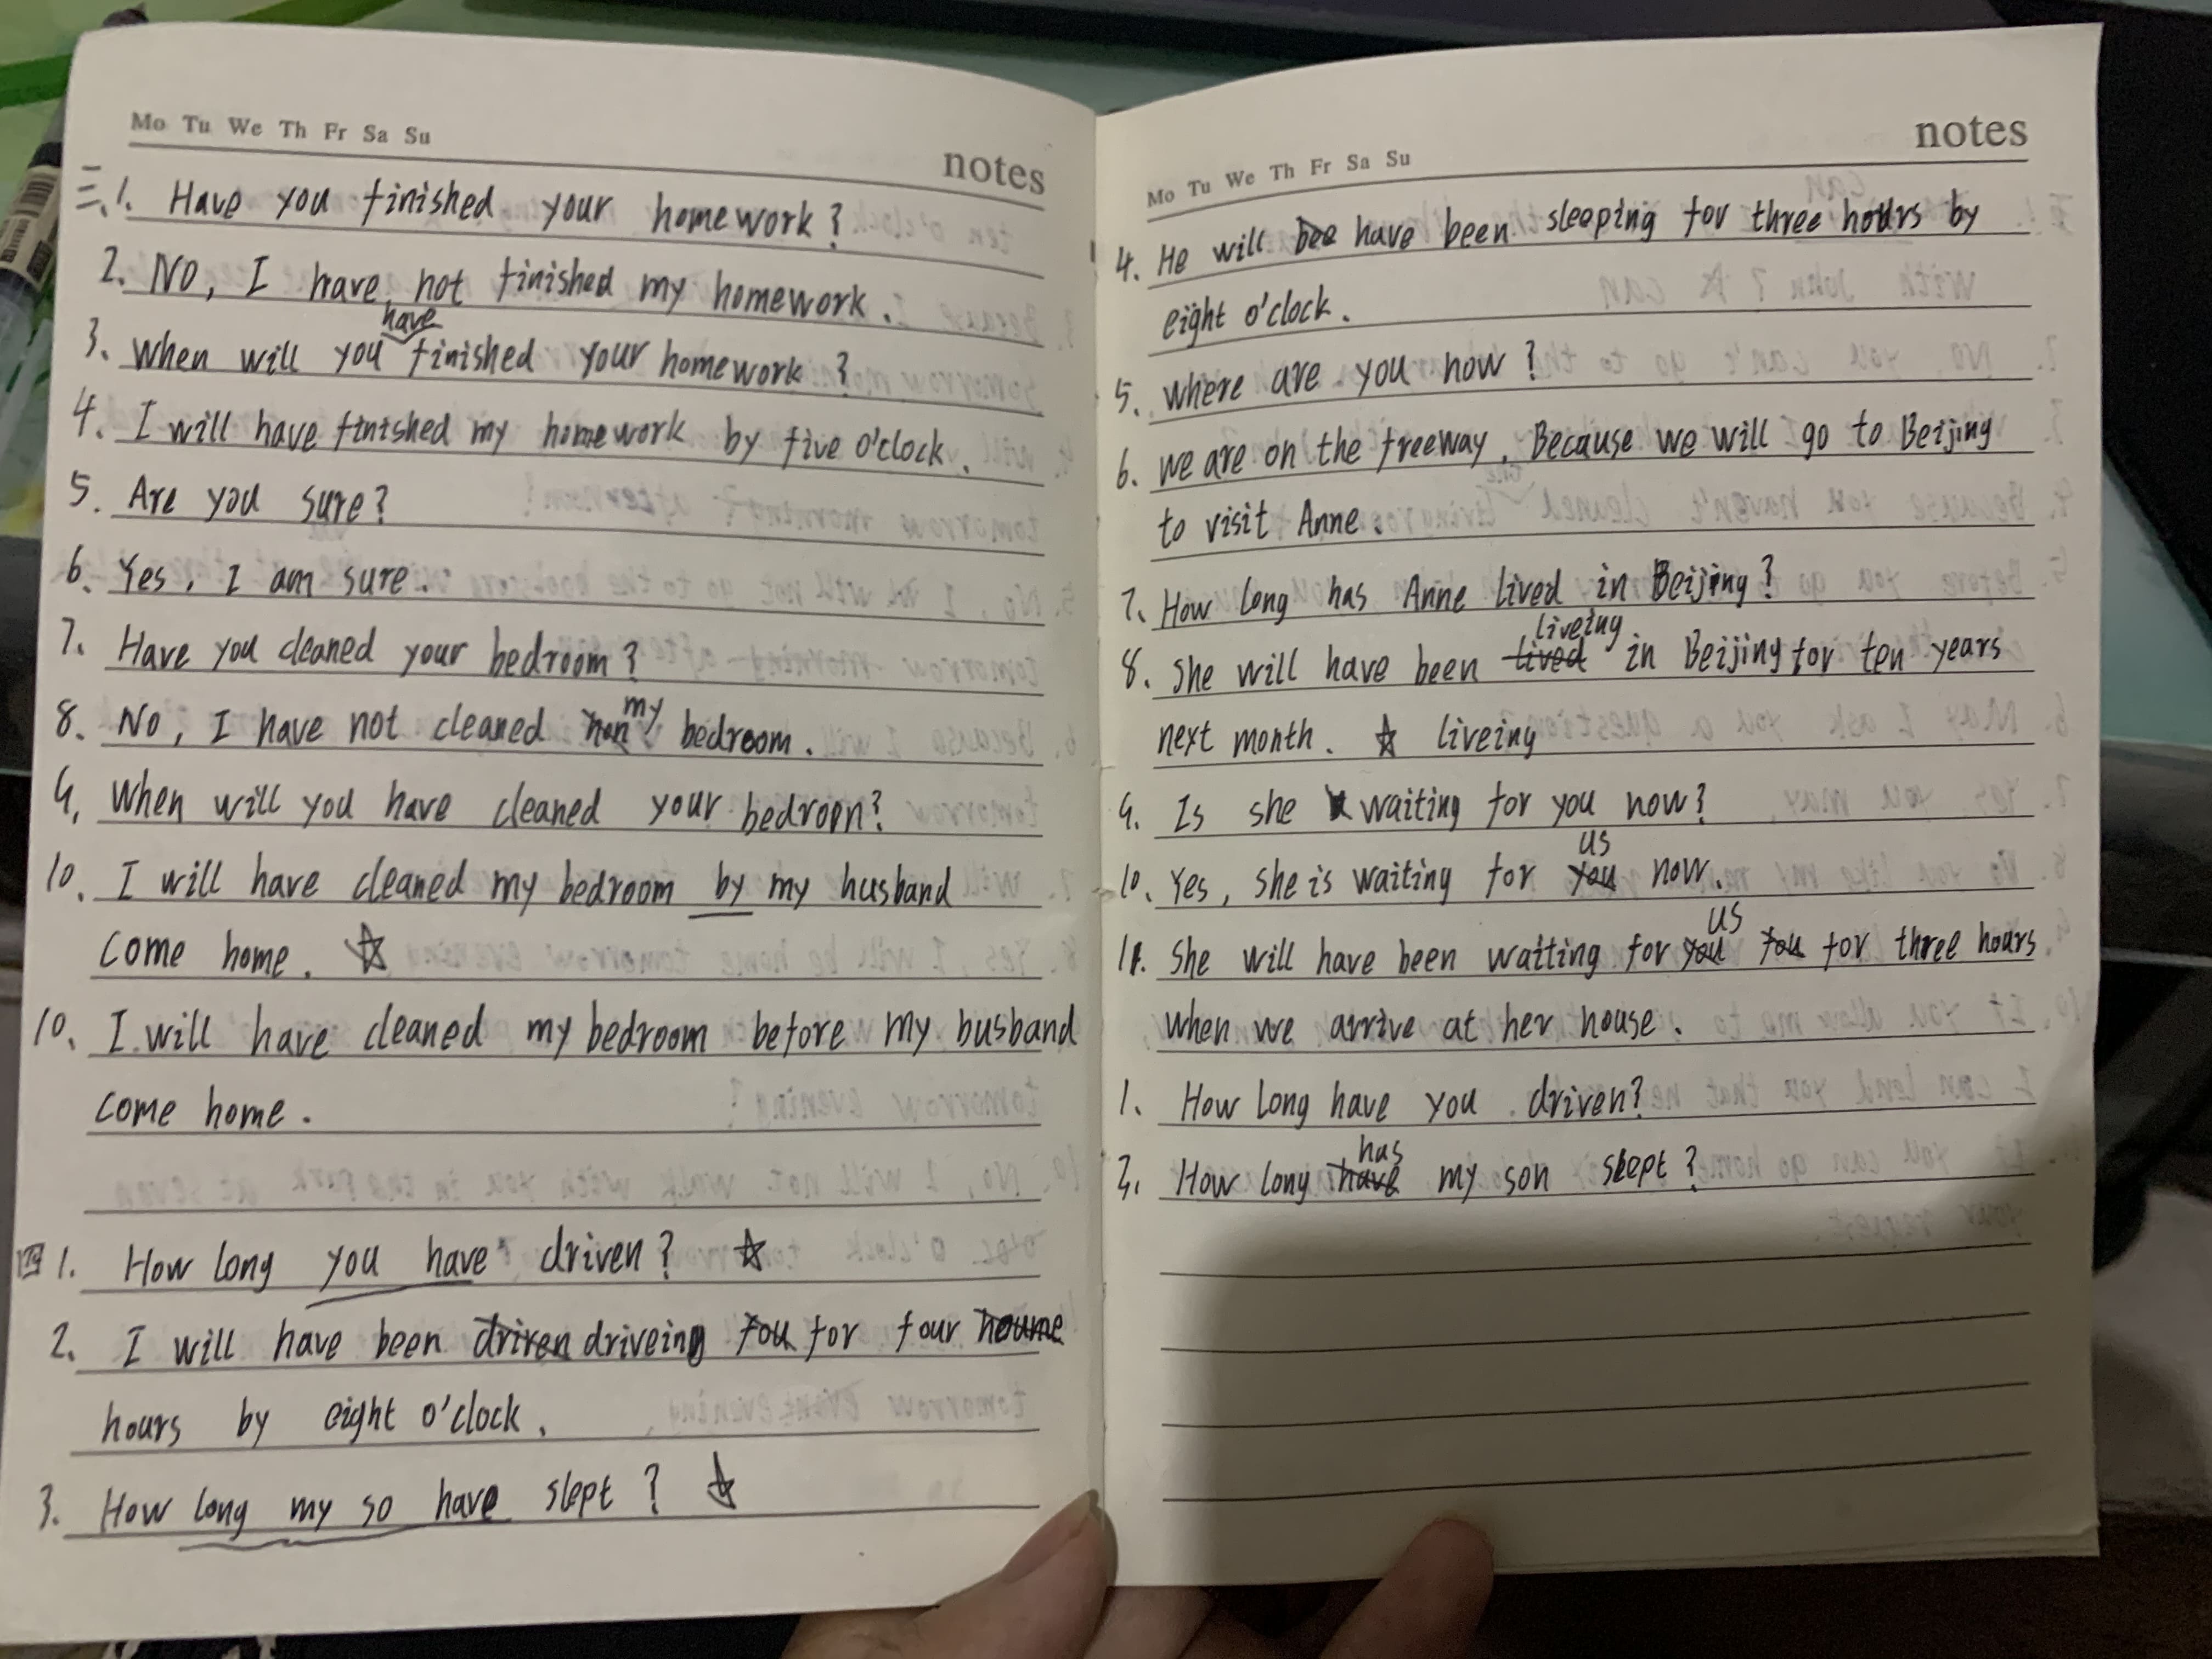 Mo Tu We Th Fr Sa Su
notes
三、1. Have you finished your homework?
2. NO, I have not finished my homework.
3. When will you have finished your homework?
4. I will have finished my homework by five o'clock.
5. Are you sure?
6. Yes, I am sure.
7. Have you cleaned your bedroom?
8. No, I have not cleaned my bedroom.
9. When will you have cleaned your bedroom?
10. I will have cleaned my bedroom by my husband
come home. ☆
10. I will have cleaned my bedroom before my busband
come home.
四 1. How long you have driven? ☆
2. I will have been driren driveing fou for four houme
hours by eight o'clock.
3. How long my so have slept? ☆
Mo Tu We Th Fr Sa Su
notes
4. He will bee have been sleeping for three hours by
eight o'clock.
5. where are you now?
6. we are on the freeway, Because we will go to Beijing
to visit Anne.
7. How long has Anne lived in Beijing?
8. She will have been lived liveing in Beijing for ten years
next month. ☆ liveing
9. Is she waiting for you now?
10. Yes, she is waiting for you us now.
11. She will have been waiting for you us fou for three hours
when we arrive at her house.
1. How long have you driven?
3. How long have has my son slept?